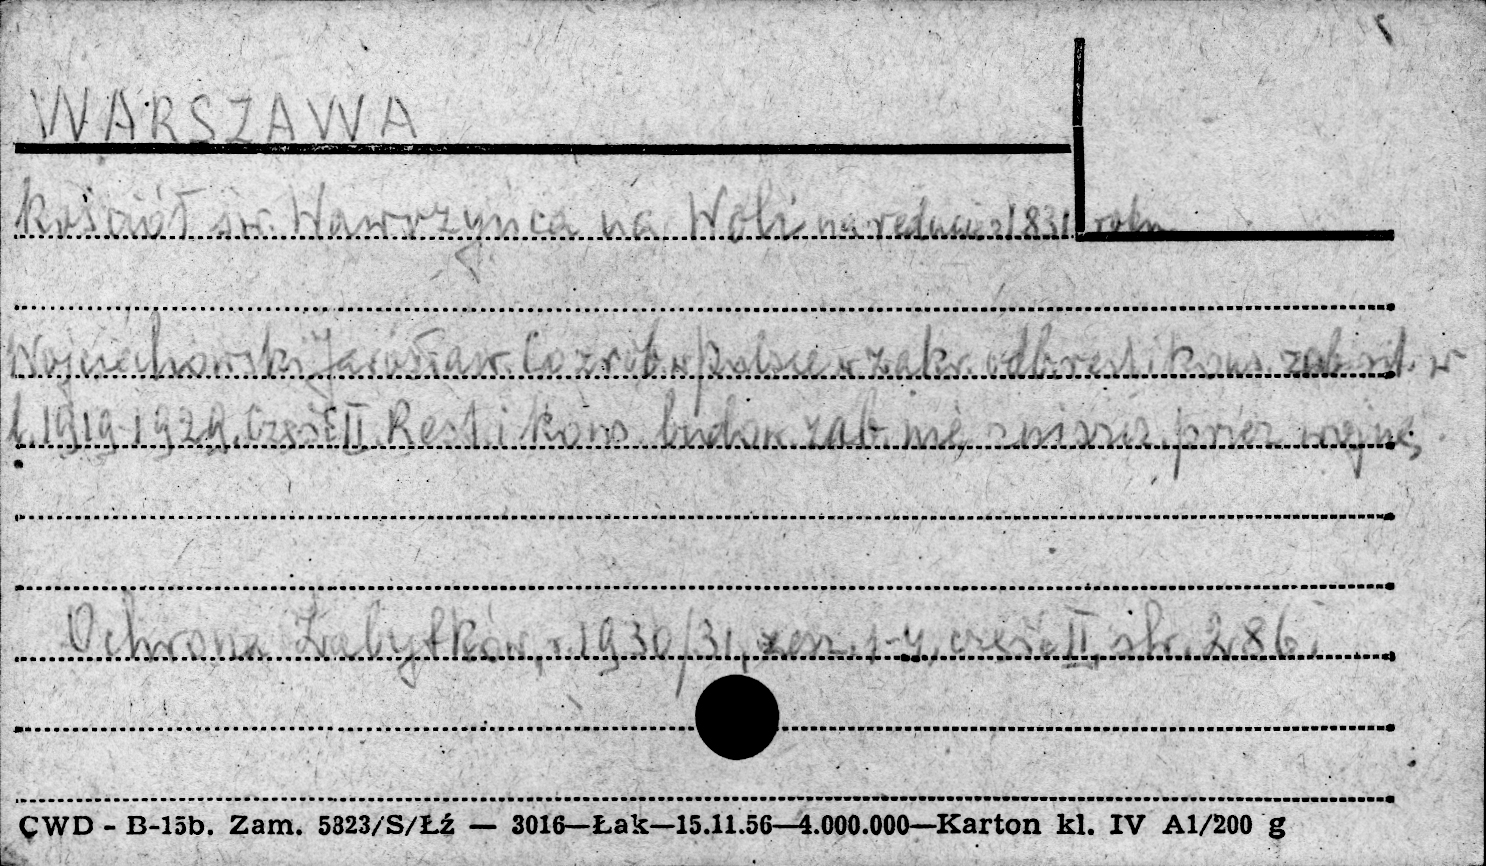 WARSZAWA
Kościół św. Wawrzyńca na Woli na reducie z 1831 roku
Wojciechowski Jarosław. Co zrob. w Polsce w zakr. odb. rest. i kons. zab. szt. w
l. 1919-1929. Część II Rest. i kons. budow. zab. nie zniszcz. przez wojnę.
Ochrona Zabytków, r. 1930/31, zesz. 1-4, część II, str. 286.
CWD - B-15b. Zam. 5823/S/Łź — 3016—Łak—15.11.56—4.000.000—Karton kl. IV A1/200 g